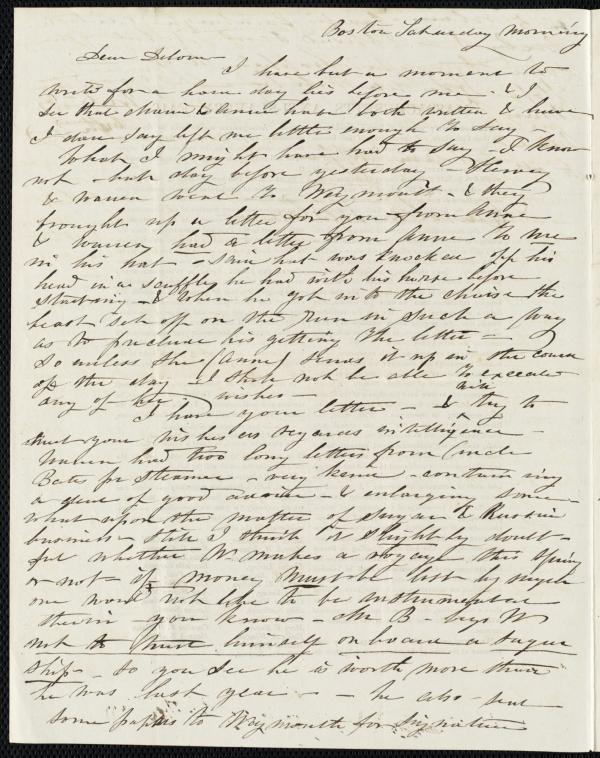 Boston Saturday Morning
Dear Debora
I have but a moment to
write for a hard day lies before me - & I
see that Maria & Anne have both written & have
I dare say left me little enough to say -
What I might have had to say - I know
not - but day before yesterday - Hervey
& Warren went to Weymouth - & they
brought up a letter for you from Anne
& Warren had a letter from Anne to me
in his hat - said hat was knocked off his
head in a scuffle he had with his horse before
starting - & when he got into the chaise the
beast set off on the run in such a way
as to preclude his getting the letter -
so unless she (Anne) sends it up in the course
of the day - I shall not be able to execute
any of her wishes -
I have your letter - & will try to
meet your wishes as regards intelligence -
Warren had two long letters from Uncle
Bates per Steamer - very kind - containing
a deal of good advice - & enlarging some
what upon the matter of sugar & Russia
business - still I think it slightly doubt-
ful whether W. makes a voyage this spring
or not - if money must be lost by
one would not like to be instrumental
therein - you know - Mr B - begs W
not to trust himself on board a sugar
ship - so you see he is worth more than
he was last year - he also sent
some papers to Weymouth for signature